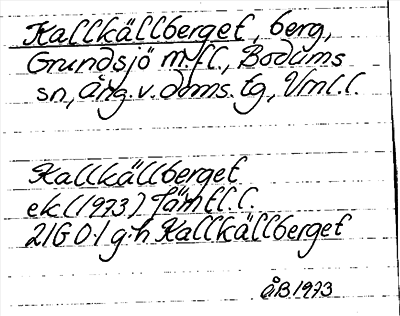 Kallkällberget, berg,
Grundsjö m.fl., Bodums
sn, Ång.v. doms. tg, Vnl.l.
Kallkällberget
ek (1973) Jämtl.l.
21G 0-1 g-h Kallkällberget
åB 1973